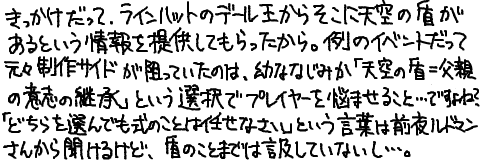 きっかけだって、ラインハットのデール王からそこに天空の盾が
あるという情報を提供してもらったから。例のイベントだって
元々制作サイドが狙っていたのは、幼ななじみか「天空の盾=父親
の意志の継承」という選択でプレイヤーを悩ませること…ですよね?
「どちらを選んでも式のことは任せなさい」という言葉は前夜ルドマン
さんから聞けるけど、盾のことまでは言及していないし…。